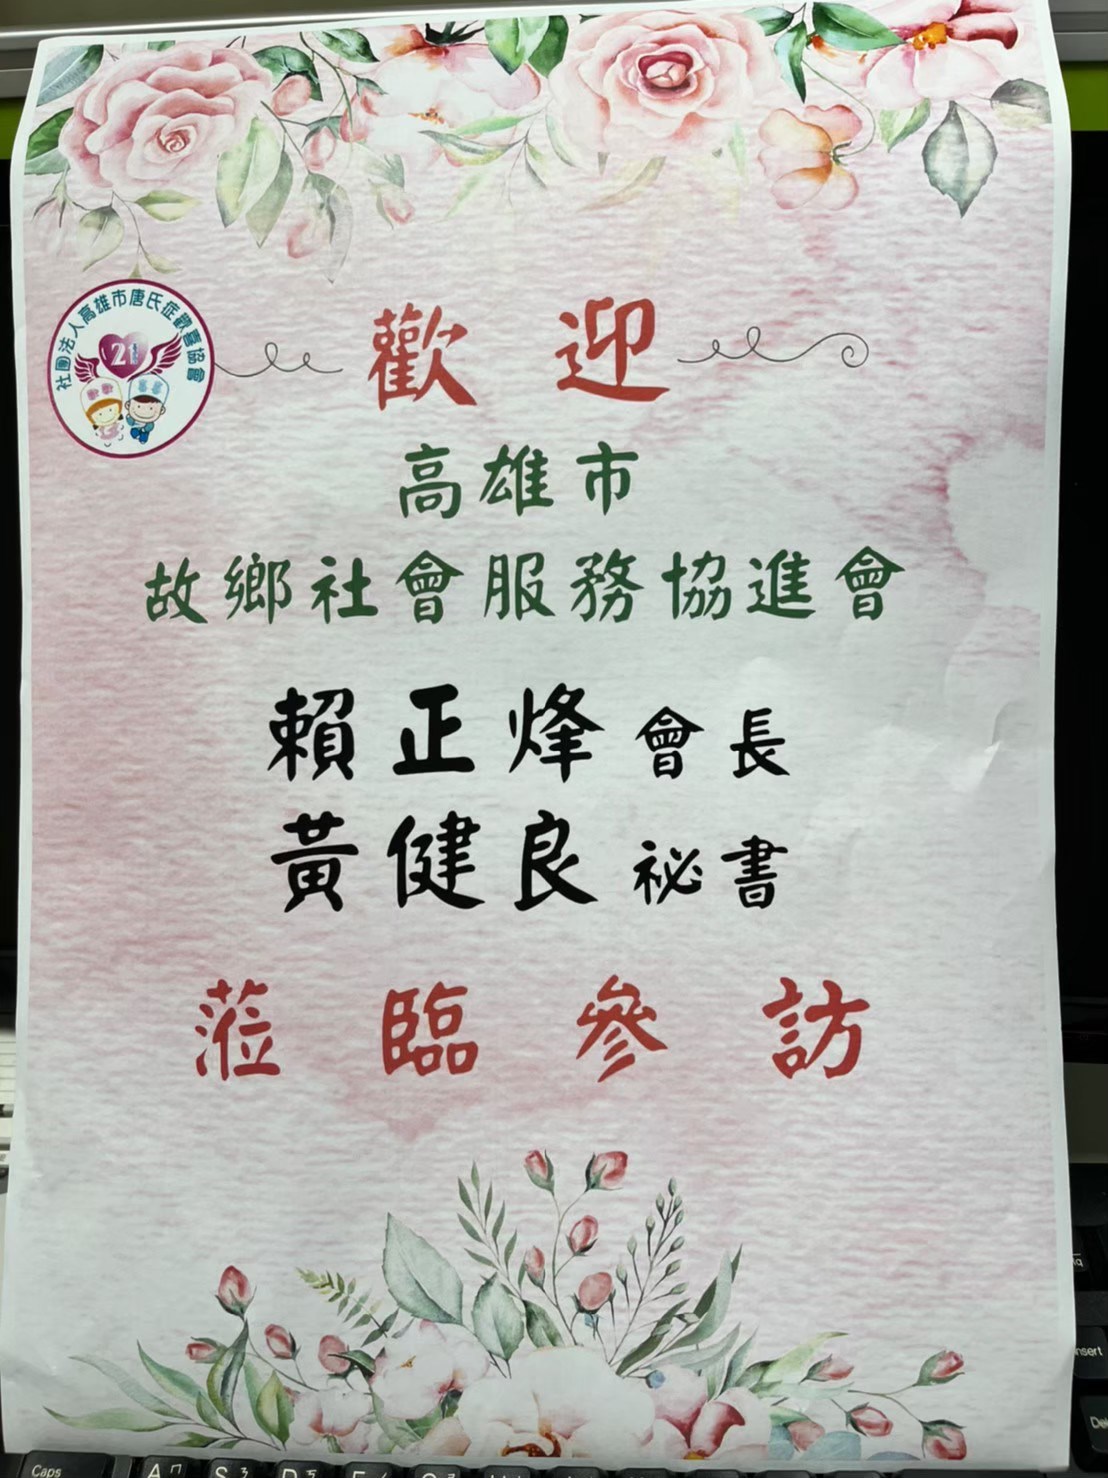 社團法人高雄市唐氏症歡喜協會
21
歡迎
高雄市
故鄉社會服務協進會
賴正烽會長
黃健良祕書
蒞臨參訪
Caps
A ㄇ
S ㄋ
Insert